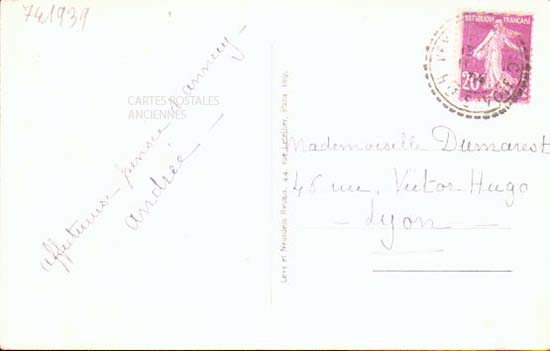 741939
CARTES POSTALES
ANCIENNES
affectueuse pensée d'annecy
andrée
Levy et Neurdein Réunis, 44, rue Letellier, Paris Imp.
RÉPUBLIQUE FRANÇAISE
20c
Mademoiselle Dumarest
46 rue Victor Hugo
- Lyon -